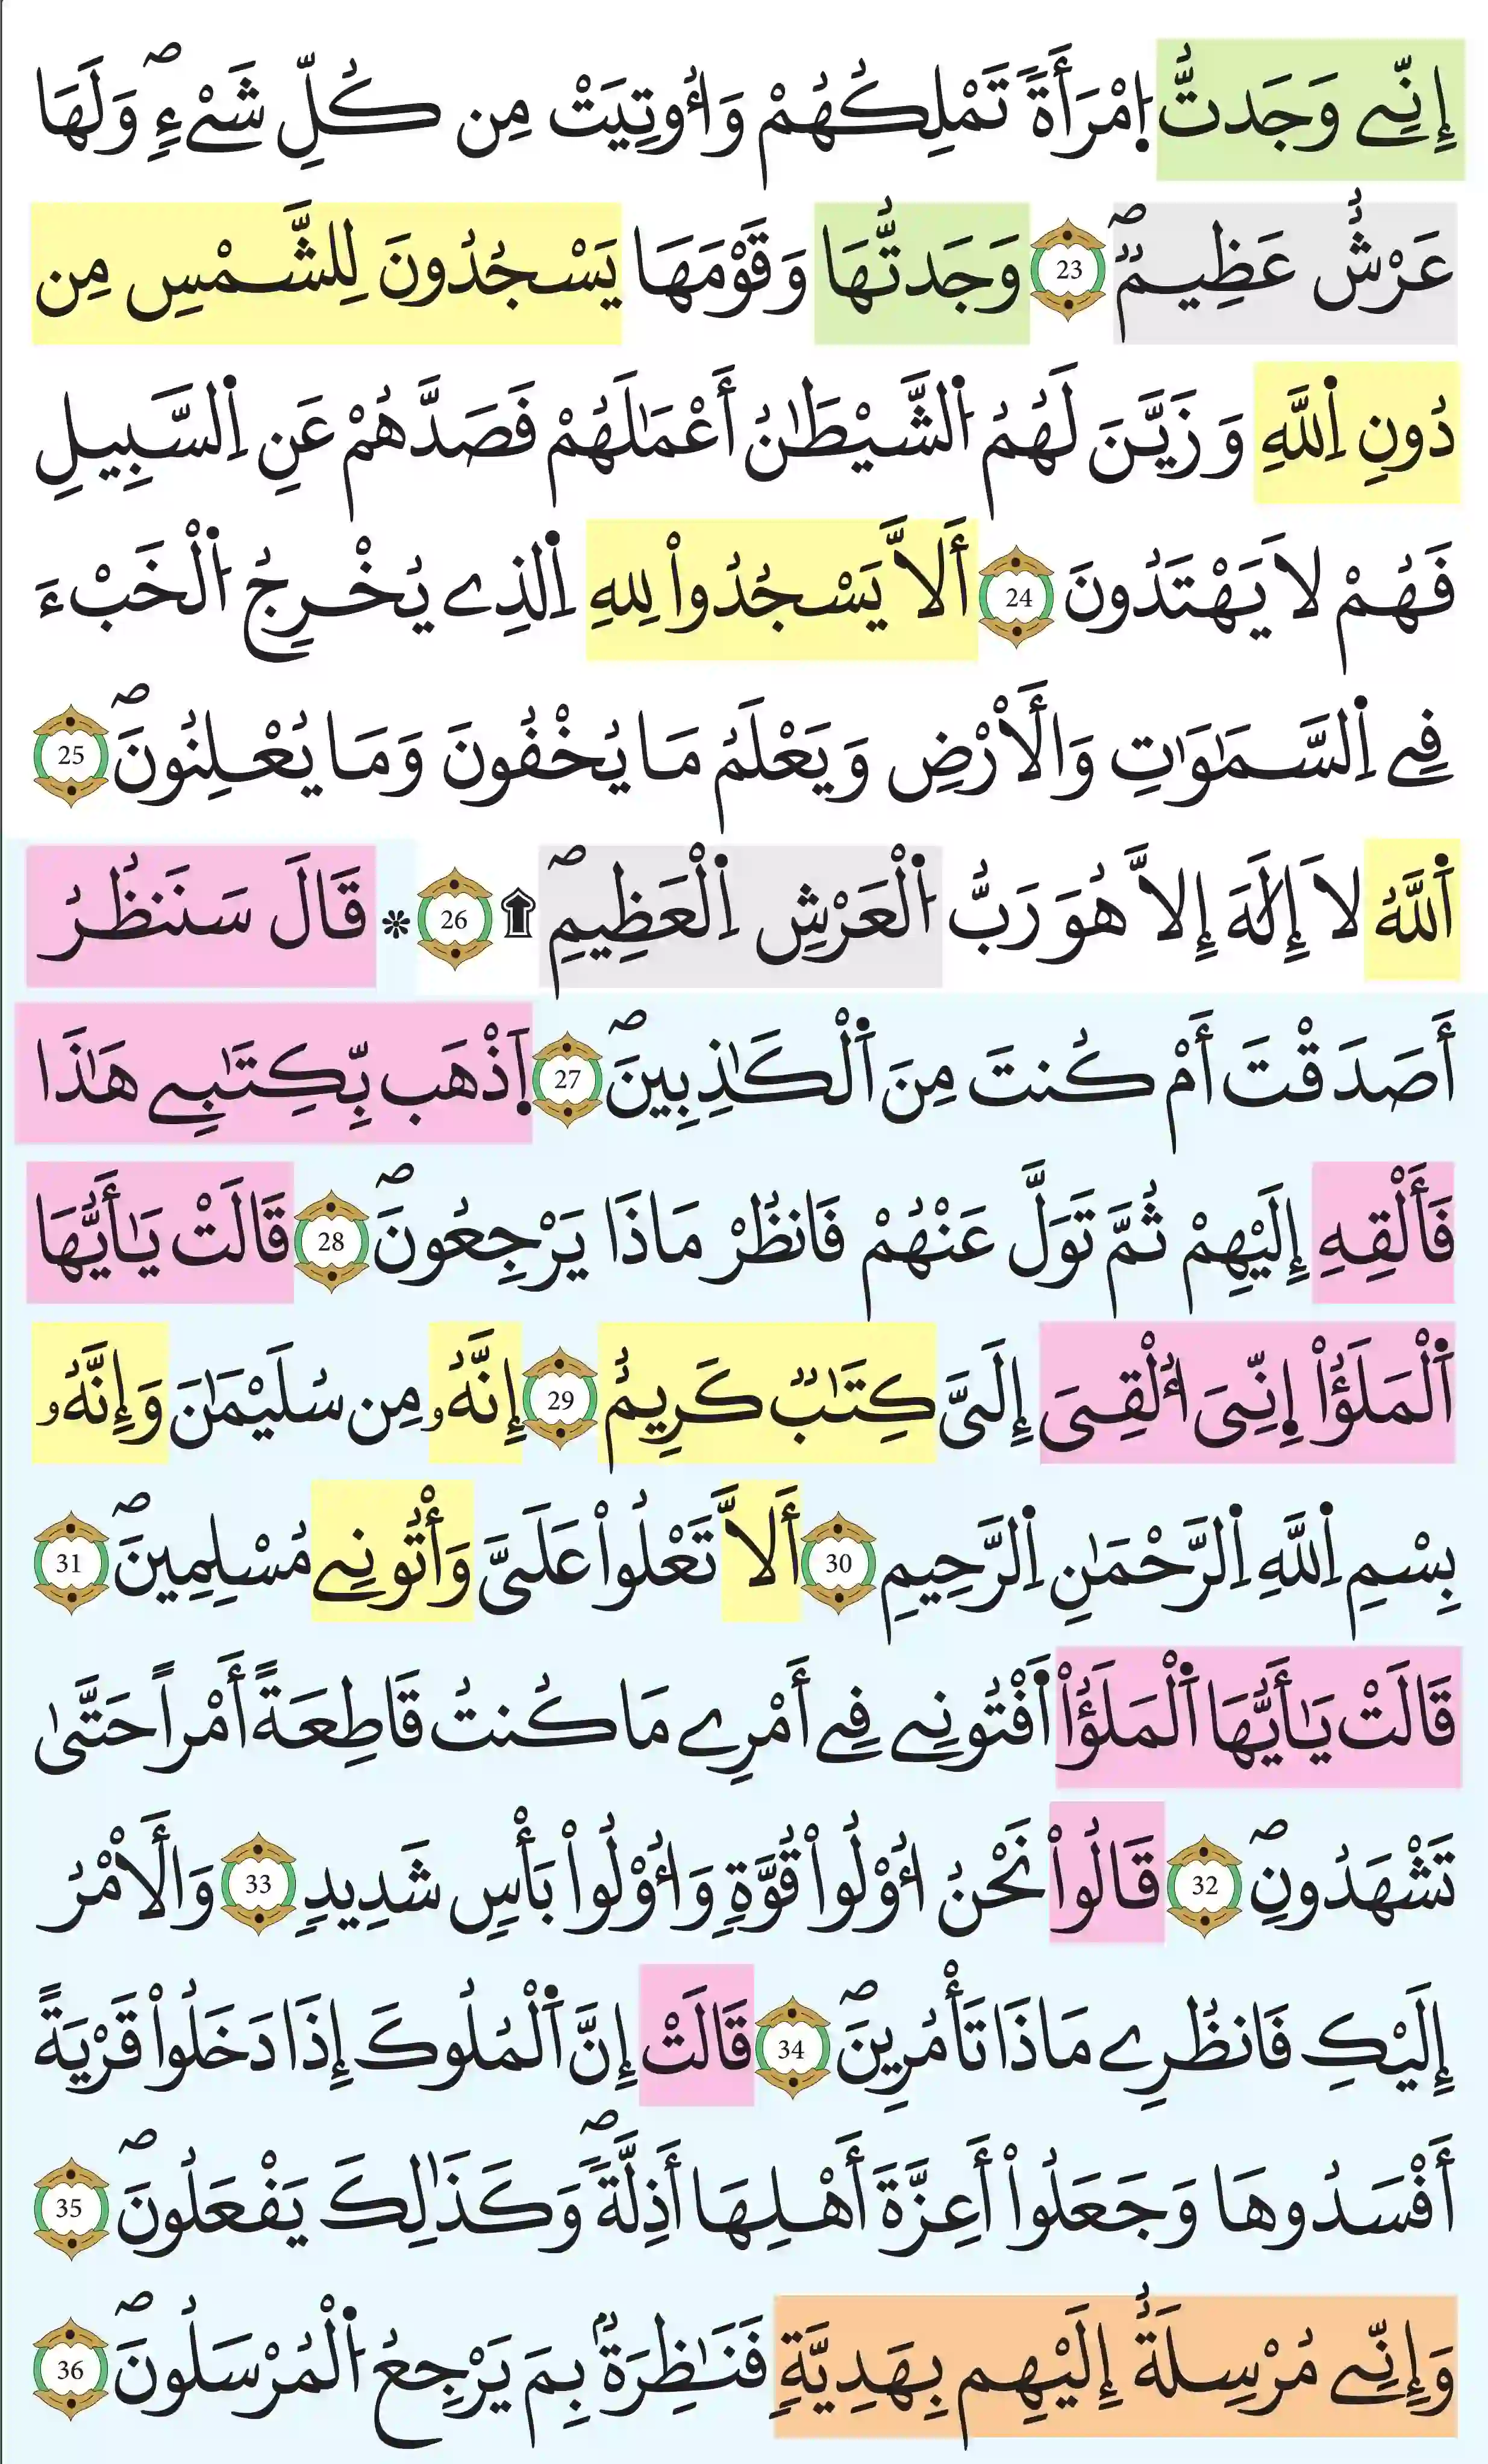 إِنِّے وَجَدتُّ اُ۪مْرَأَةٗ تَمْلِكُهُمْ وَأُوتِيَتْ مِن كُلِّ شَےْءٖۖ وَلَهَا
عَرْشٌ عَظِيمٞۖ 23 وَجَدتُّهَا وَقَوْمَهَا يَسْجُدُونَ لِلشَّمْسِ مِن
دُونِ اِ۬للَّهِ وَزَيَّنَ لَهُمُ اُ۬لشَّيْطَٰنُ أَعْمَٰلَهُمْ فَصَدَّهُمْ عَنِ اِ۬لسَّبِيلِ
فَهُمْ لَا يَهْتَدُونَ 24 أَلَّا يَسْجُدُواْ لِلهِ اِ۬لذِے يُخْرِجُ اُ۬لْخَبْءَ
فِے اِ۬لسَّمَٰوَٰتِ وَالَارْضِ وَيَعْلَمُ مَا يُخْفُونَ وَمَا يُعْلِنُونَۖ 25
اَ۬للَّهُ لَا إِلَٰهَ إِلَّا هُوَ رَبُّ اُ۬لْعَرْشِ اِ۬لْعَظِيمِۖ ۩ 26 * قَالَ سَنَنظُرُ
أَصَدَقْتَ أَمْ كُنتَ مِنَ اَ۬لْكَٰذِبِينَۖ 27 اَ۪ذْهَب بِّكِتَٰبِے هَٰذَا
فَأَلْقِهِ إِلَيْهِمْ ثُمَّ تَوَلَّ عَنْهُمْ فَانظُرْ مَاذَا يَرْجِعُونَۖ 28 قَالَتْ يَٰأَيُّهَا
اَ۬لْمَلَؤُاْ اِ۪نِّيَ أُلْقِيَ إِلَيَّ كِتَٰبٞ كَرِيمٌ 29 إِنَّهُۥ مِن سُلَيْمَٰنَ وَإِنَّهُۥ
بِسْمِ اِ۬للَّهِ اِ۬لرَّحْمَٰنِ اِ۬لرَّحِيمِ 30 أَلَّا تَعْلُواْ عَلَيَّ وَأْتُونِے مُسْلِمِينَۖ 31
قَالَتْ يَٰأَيُّهَا اَ۬لْمَلَؤُاْ اَ۬فْتُونِے فِے أَمْرِے مَا كُنتُ قَاطِعَةً أَمْراً حَتَّىٰ
تَشْهَدُونِۖ 32 قَالُواْ نَحْنُ أُوْلُواْ قُوَّةٖ وَأُوْلُواْ بَأْسٖ شَدِيدٖ 33 وَالَامْرُ
إِلَيْكِ فَانظُرِے مَاذَا تَأْمُرِينَۖ 34 قَالَتْ إِنَّ اَ۬لْمُلُوكَ إِذَا دَخَلُواْ قَرْيَةً
أَفْسَدُوهَا وَجَعَلُواْ أَعِزَّةَ أَهْلِهَا أَذِلَّةٗۖ وَكَذَٰلِكَ يَفْعَلُونَۖ 35
وَإِنِّے مُرْسِلَةٌ إِلَيْهِم بِهَدِيَّةٖ فَنَٰظِرَةُۢ بِمَ يَرْجِعُ اُ۬لْمُرْسَلُونَۖ 36